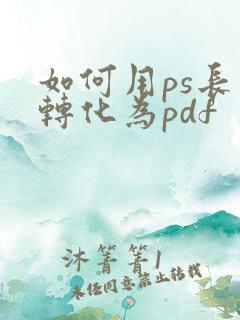 如何用ps長
轉化為pdf
沐箐箐1
未经同意禁止转载